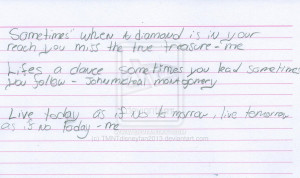 Sometimes when a diamond is in your
reach you miss the true treasure - me
Lifes a dance sometimes you lead sometimes
you follow - John micheal montgomery
Live today as if no tomorrow, live tomorrow
as if no today - me